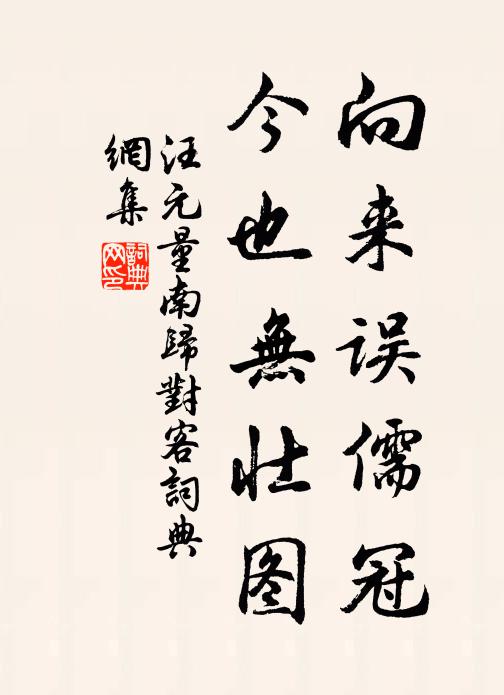 向来误儒冠
今也無壮图
汪元量南歸對客詞典
網集
詞典网印